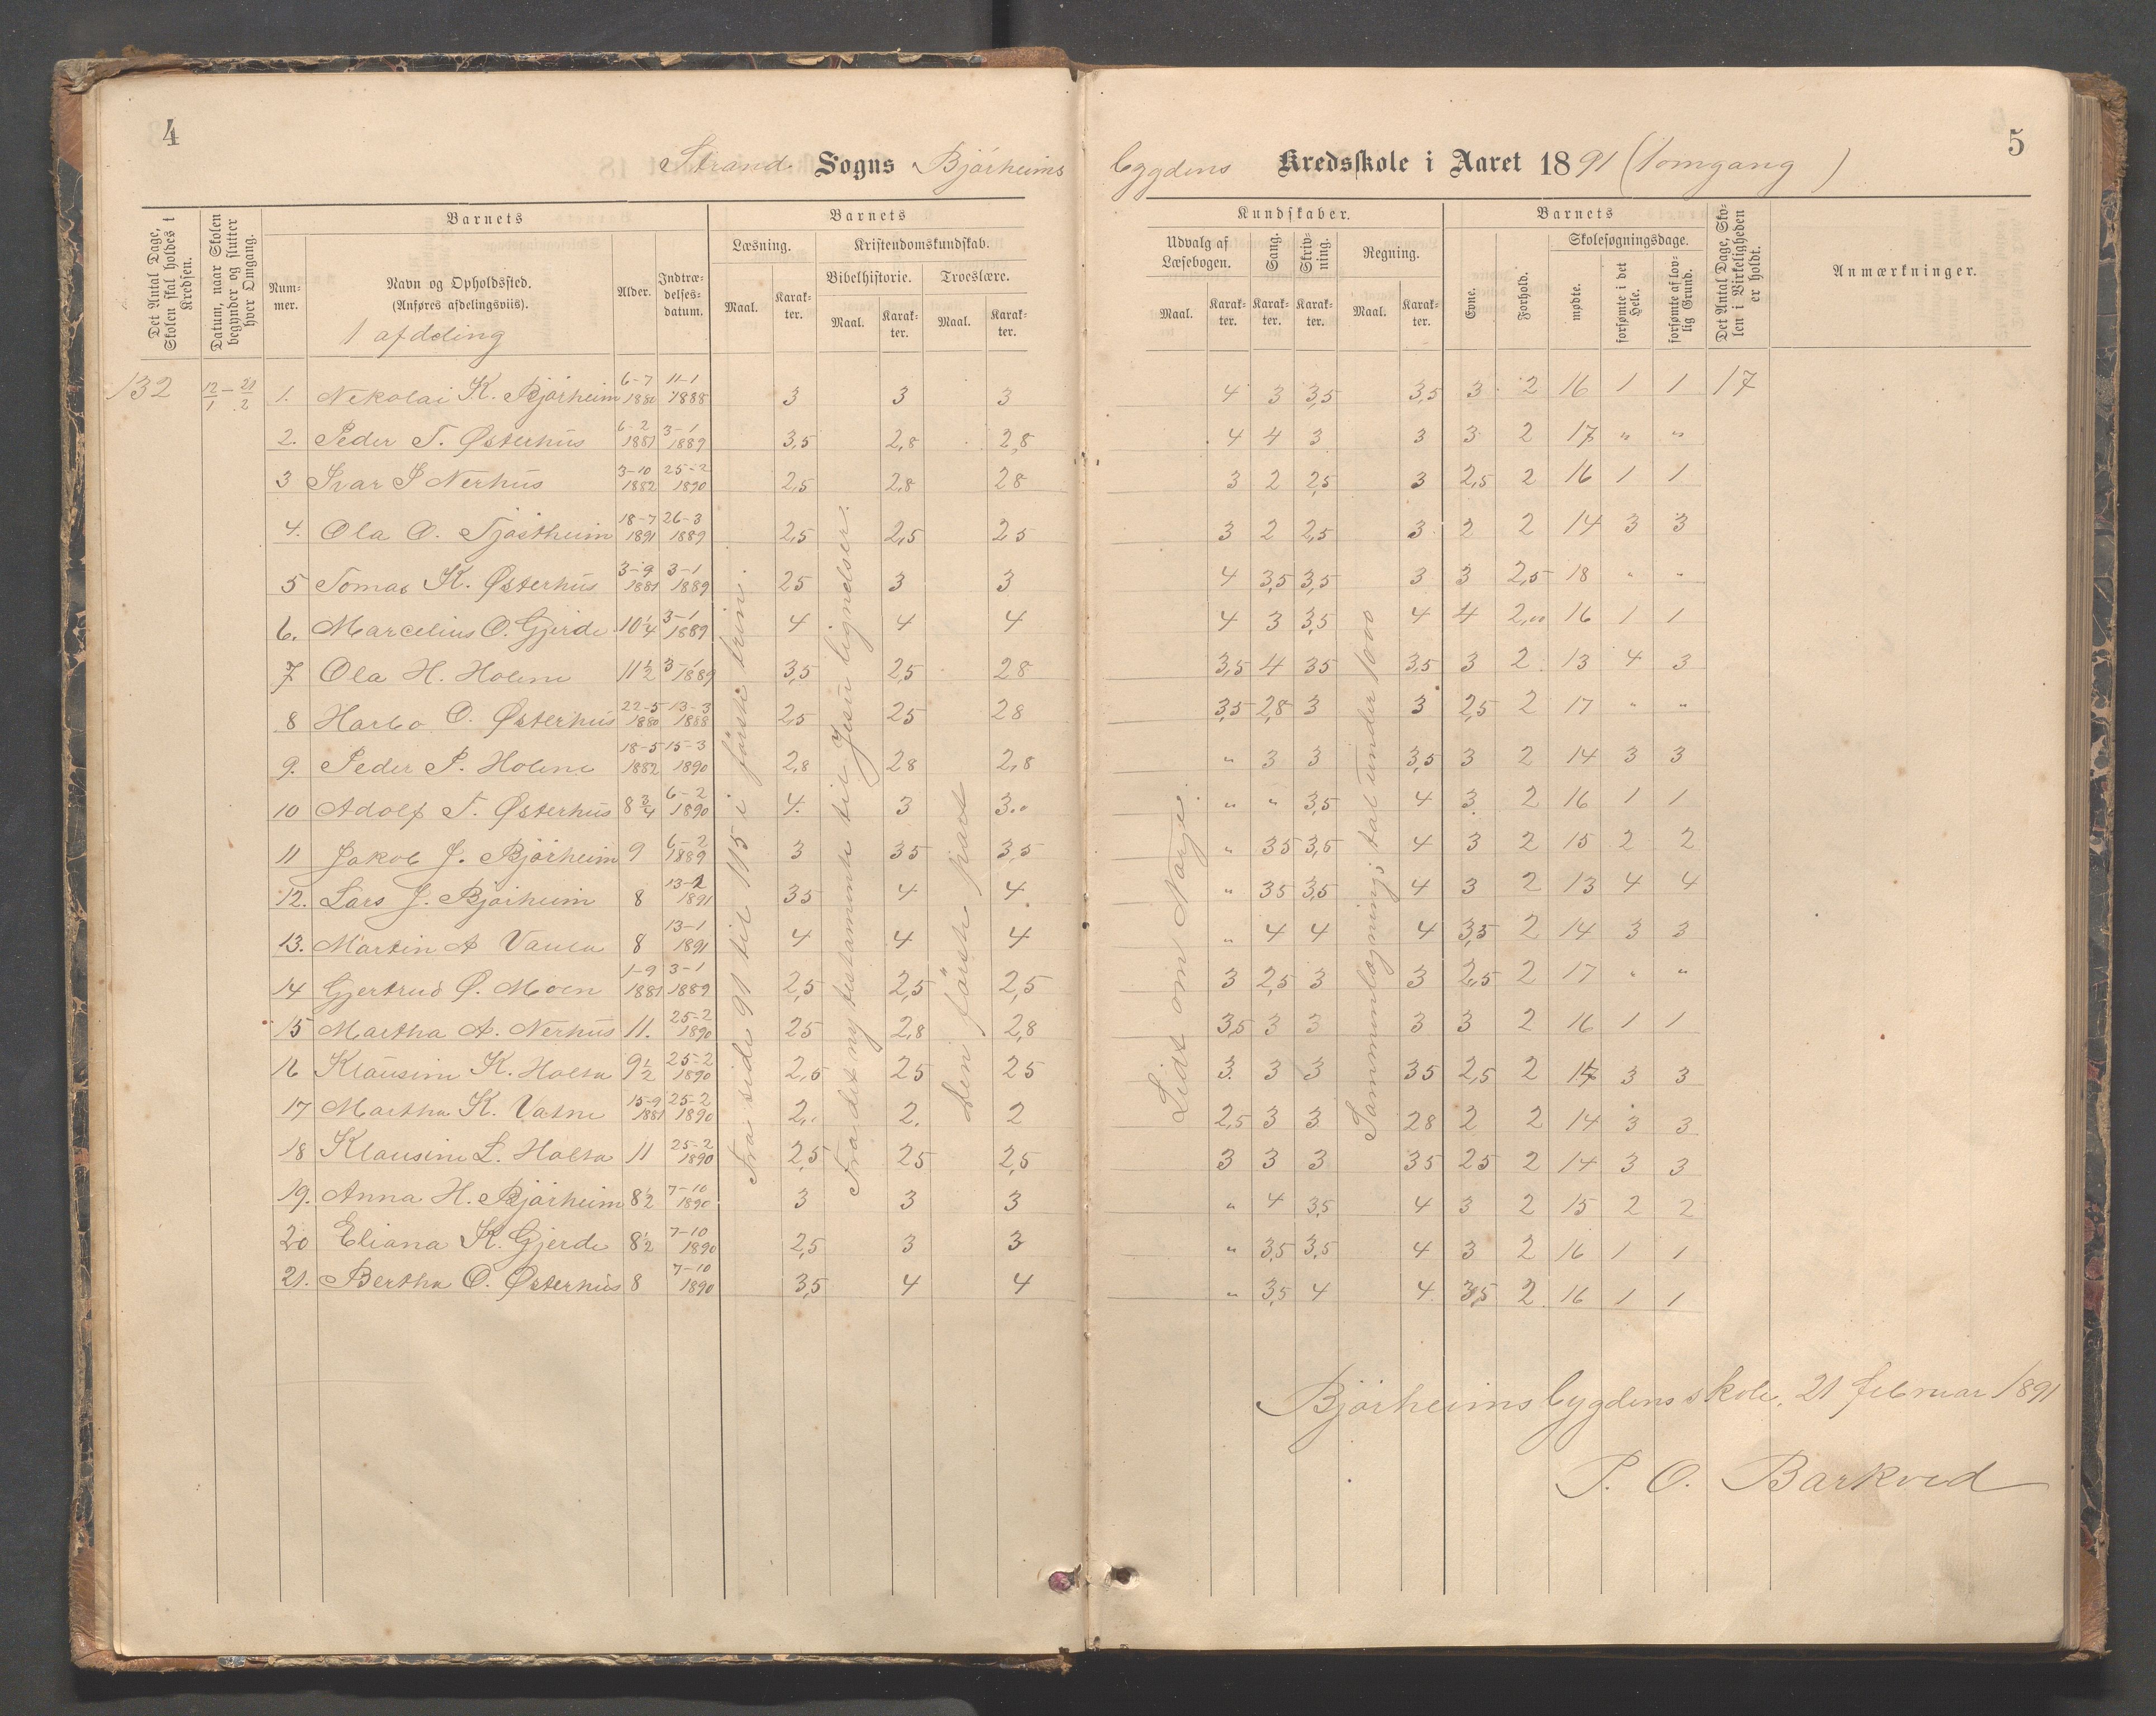 4
Strand Sogns Bjørheims
Det Antal Dage, Skolen skal holdes i Kredsen.
Datum, naar Skolen begynder og slutter hver Omgang.
Barnets
Barnets
Num-
mer.
Navn og Opholdssted.
(Anføres afdelingsviis).
Alder.
Indtræ-
delses-
datum.
Læsning.
Kristendomskundskab.
Bibelhistorie.
Troeslære.
Maal. Karak-ter. Maal. Karak-ter. Maal. Karak-ter.
1 afdeling
132 12/1 – 21/2 1. Nekolai K. Bjørheim 6-7 1880 11-1 1888 3 3 3
2. Peder T. Østerhus 6-2 1881 3-1 1889 3,5 2,8 2,8
3 Ivar S Nerhus 3-10 1882 25-2 1890 2,5 2,8 28
4. Ola O. Tjøstheim 18-7 1891 26-3 1889 2,5 2,5 25
5 Tomas K. Østerhus 3-9 1881 3-1 1889 25 3 3
6. Marcelius O. Gjerde 10 1/4 3-1 1889 4 4 4
7 Ola H. Holene 11 1/2 3-1 1889 3,5 25 28
8 Harbo O. Østerhus 22-5 1880 13-3 1888 2,5 25 28
9. Peder P. Holene 18-5 1882 15-3 1890 2,8 28 2,8
10 Adolf T. Østerhus 8 3/4 6-2 1890 4. 3 3
11 Jakob J. Bjørheim 9 6-2 1889 3 35 3,5
12. Lars J. Bjørheim 8 13-1 1891 35 4 4
13. Martin A 8 13-1 1891 4 4 4
14 Gjertrud Ø. Moen 1-9 1881 3-1 1889 2,5 2,5 2,5
15 Martha A. Nerhus 11. 25-2 1890 25 2,8 2,8
16 Klausine K. Holta 9 1/2 25-2 1890 2,5 25 25
17 Martha K. Vatne 15-9 1881 25-2 1890 2 2. 2
18 Klausine L. Holta 11 25-2 1890 2,5 25 2,5
19. Anna H. Bjørheim 8 1/2 7-10 1890 3 3 3
20 Eliana K. Gjerde 8 1/2 7-10 1890 2,5 3 3
21. Bertha O. Østerhus 8 7-10 1890 3,5 4 4
Fra side 91 til 115 i første trini
Fra det ny testamente til Jesu lignelser.
Den første part
5
bygdens Kredsskole i Aaret 1891 (1 omgang )
Kundskaber.
Barnets
Det Antal Dage, Sko-
len i Virkeligheden
er holdt.
Anmærkninger.
Udvalg af
Læsebogen.
Sang.
Skriv-
ning.
Regning.
Evne.
Forhold.
Skolesøgningsdage.
mødte.
forsømte i det
Hele.
forsømte af lov-
lig Grund.
Maal. Karak-ter. Karak-ter. Karak-ter. Maal. Karak-ter.
4 3 3,5 3,5 3 2 16 1 1 17
4 4 3 3 3 2 17 " "
3 2 2,5 3 2,5 2 16 1 1
3 2 2,5 3 2 2 14 3 3
4 3,5 3,5 3 3 2,5 18 " "
4 3 3,5 4 4 2,"" 16 1 1
3,5 4 35 3,5 3 2 13 4 3
3,5 2,8 3 3 2,5 2 17 " "
" 3 3 3,5 3 2 14 3 3
" " 3,5 4 3 2 16 1 1
" 35 3,5 4 3 2 15 2 2
" 35 3,5 4 3 2 13 4 4
" 4 4 4 3,5 2 14 3 3
3 2,5 3 3 2,5 2 17 " "
3,5 3 3 3 3 2 16 1 1
3. 3 3 35 2,5 2 14 3 3
2,5 3 3 28 2 2 14 3 3
3 3 3 35 25 2 14 3 3
" 4 3,5 4 3 2 15 2 2
" 3,5 3,5 4 3 2 16 1 1
" 3,5 4 4 3,5 2 16 1 1
Lidt om Norge
Sammenlægning; tal under 1000
Bjørheimsbygdens skole, 21 februar 1891
P. O. Barkved